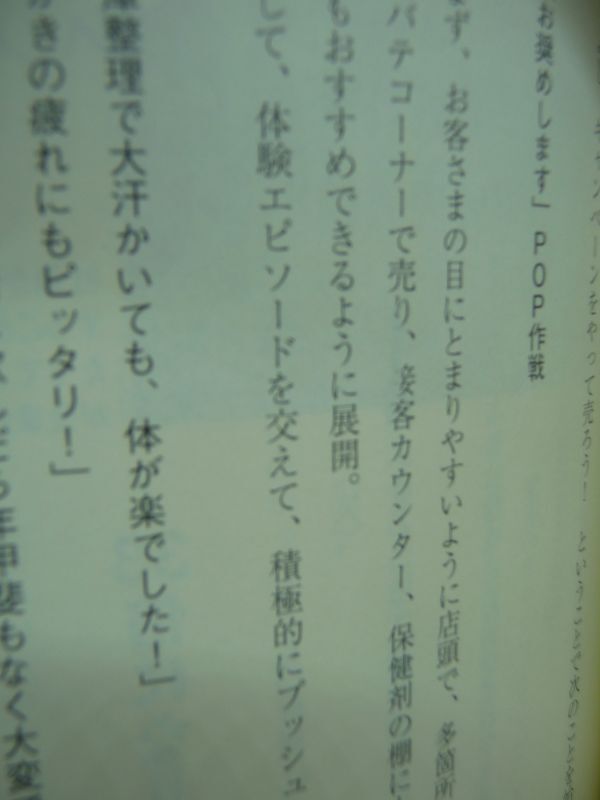 キャンペーンをやって売ろう！　ということで次のことを
お奨めします」ＰＯＰ作戦
まず、お客さまの目にとまりやすいように店頭で、多箇所
バテコーナーで売り、接客カウンター、保健剤の棚に
もおすすめできるように展開。
して、体験エピソードを交えて、積極的にプッシュ
整理で大汗かいても、体が楽でした！」
きの疲れにもピッタリ！」
年甲斐もなく大変